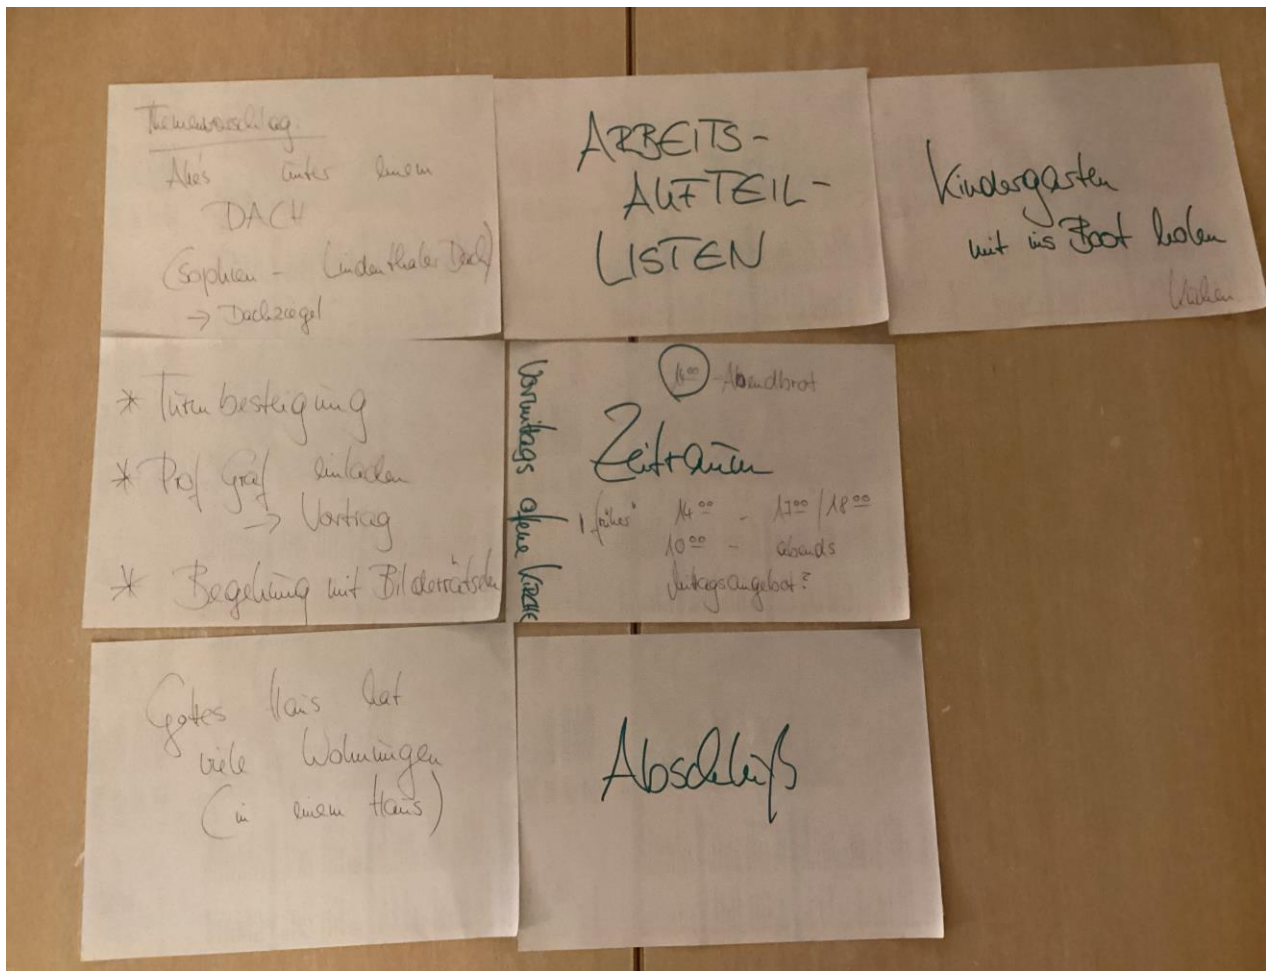 Themenvorschlag.
Alles unter einem
DACH
(Sophien - Lindenthaler Dach)
→ Dachziegel
ARBEITS-
AUFTEIL-
LISTEN
Kindergarten
mit ins Boot holen
Kuchen
* Turmbesteigung
* Prof Gräf einladen
→ Vortrag
* Begehung mit Bilderrätseln
Vormittags offene KIRCHE
-Abendbrot
Zeitraum
14⁰⁰ - 17⁰⁰/18⁰⁰
10⁰⁰ - abends
Mittagsangebot?
Gottes Haus hat
viele Wohnungen
(in einem Haus)
Abschluß